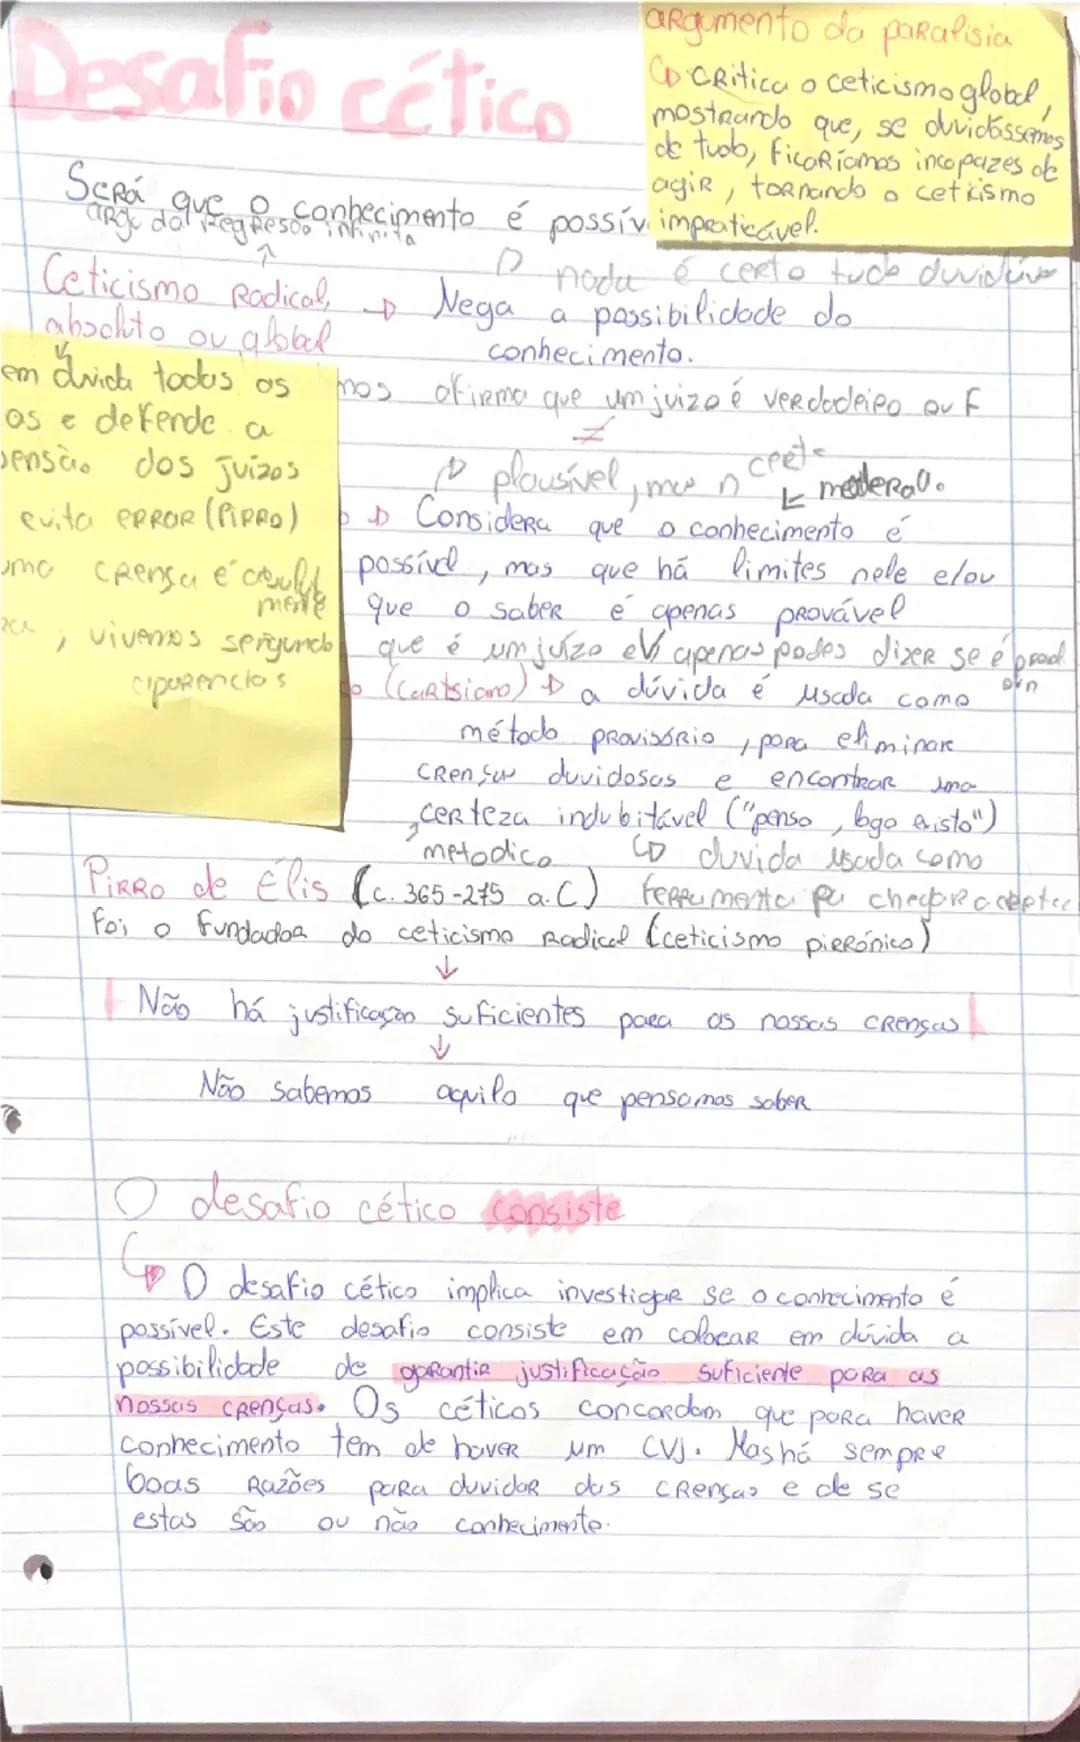 Desafio cético
argumento da paralisia
Critica o ceticismo global,
mostrando que, se duvidássemos
de tudo, ficaríamos incapazes de
agir, tornando o ceticismo
impraticável.
Será que o conhecimento é possív
arg. da regressão infinita
nada é certo tudo
Ceticismo Radical,
absoluto ou global
Nega a possibilidade do
conhecimento.
em dúvida todos os
os e defende a
pensão dos juizos
evita error (PIRRO)
uma crença é
mente
; vivemos segundo
aparencias
mos afirma que um juizo é verdadeiro ou F
≠
plausível, mas n certo
moderado.
Considera que o conhecimento é
possível, mas que há limites nele e/ou
que o saber é apenas provável
que é um juízo e apenas podes dizer se é
o (Cartsiano) a dúvida é usada como
método provisório, para eliminar
crenças duvidosas e encontrar uma
certeza indubitável ("penso, logo existo")
metodico
duvida usada como
ferramenta pa chegar a
Pirro de Élis (c. 365-275 a.C)
Foi o fundador do ceticismo Radical (ceticismo pirrónico)
↓
Não há justificação suficientes para as nossas crenças
↓
Não sabemos aquilo que pensamos saber
O desafio cético consiste
O desafio cético implica investigar se o conhecimento é
possível. Este desafio consiste em colocar em dúvida a
possibilidade de garantir justificação suficiente para as
nossas crenças. Os céticos concordam que para haver
conhecimento tem de haver um CVJ. Mas há sempre
boas razões para duvidar das crenças e de se
estas são ou não conhecimento.